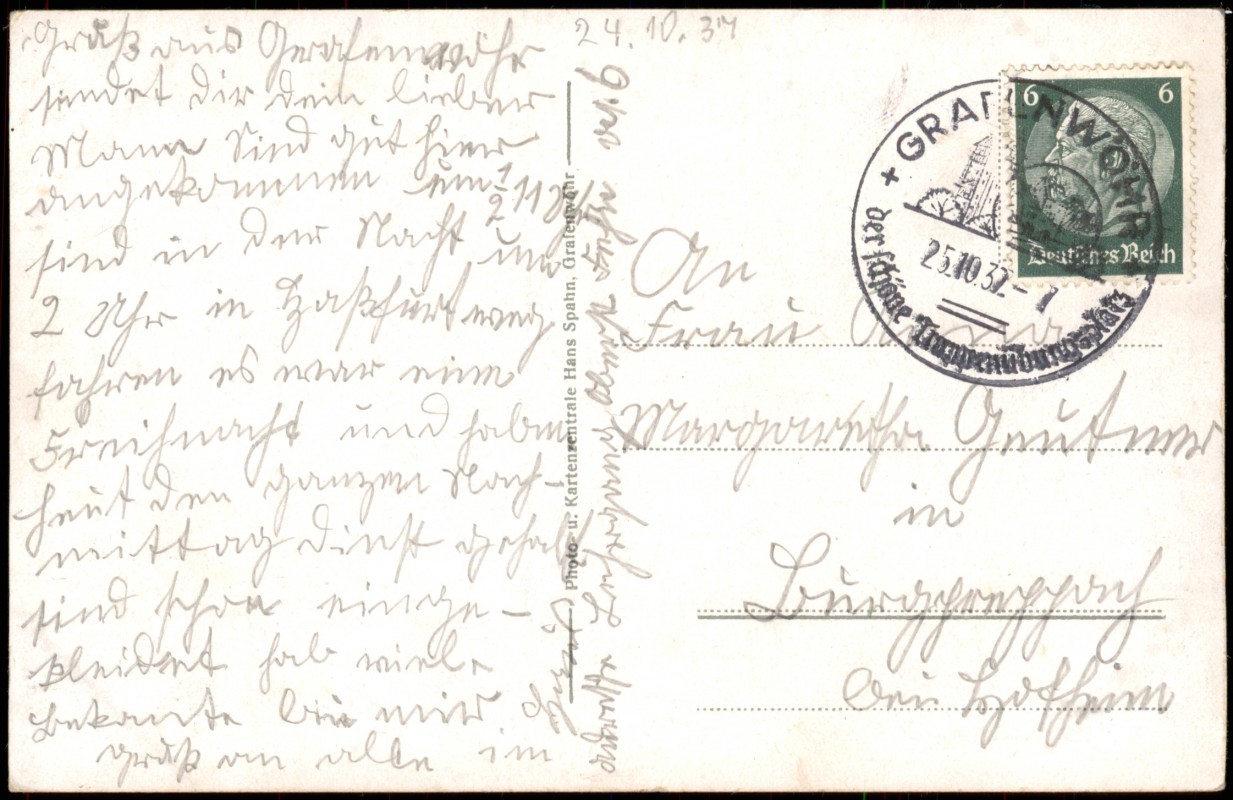 24.10.37
Gruß aus Gerafenwöhr
sendet dir dein lieber
Mann Sind gut hier
angekommen um ½ 11 Uhr
sind in der Nacht um
2 Uhr in Haßfurt weg
fahren es war eine
Freihnacht und haben
heut den ganzen Nach-
mittag dinst gehabt
sind schon einge-
kleidet hab viele
bekannte bei mir
gruß an alle im
Photo- u. Kartenzentrale Hans Spahn, Grafenwöhr
GRAFENWÖHR
25.10.37-7
der schöne Truppenübungsplatz
6 6
Deutsches Reich
An
Frau Anna
Margaretha
in
Burgpreppach
bei Hofheim